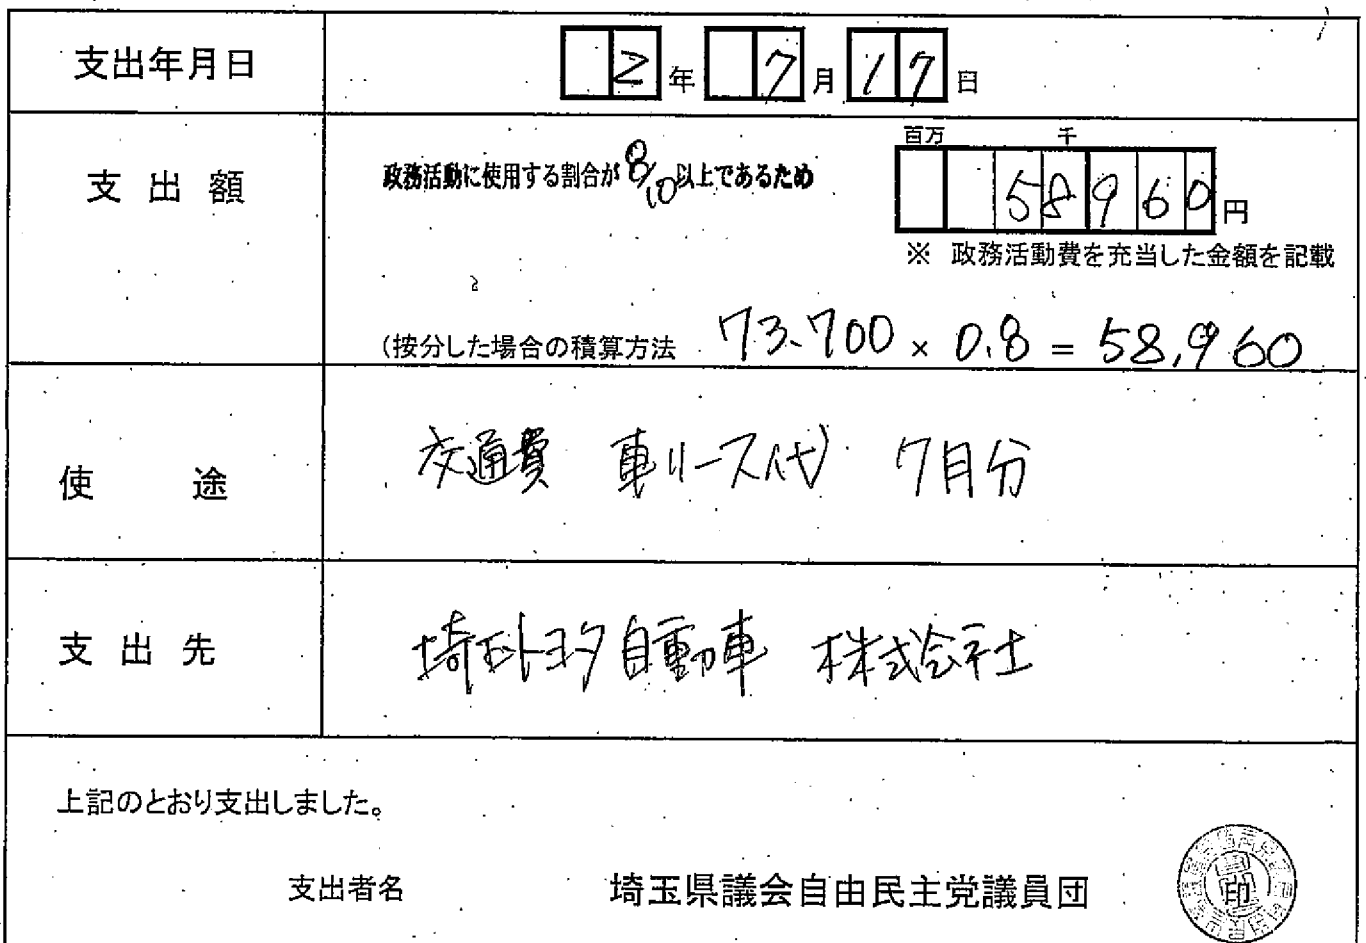 支出年月日 2年 7月 17日
百万 千
支出額 政務活動に使用する割合が8/10以上であるため 58960円
※ 政務活動費を充当した金額を記載
(按分した場合の積算方法 73,700 × 0.8 = 58,960
使途 交通費 車リース代 7月分
支出先 埼玉トヨタ自動車 株式会社
上記のとおり支出しました。
支出者名 埼玉県議会自由民主党議員団
印